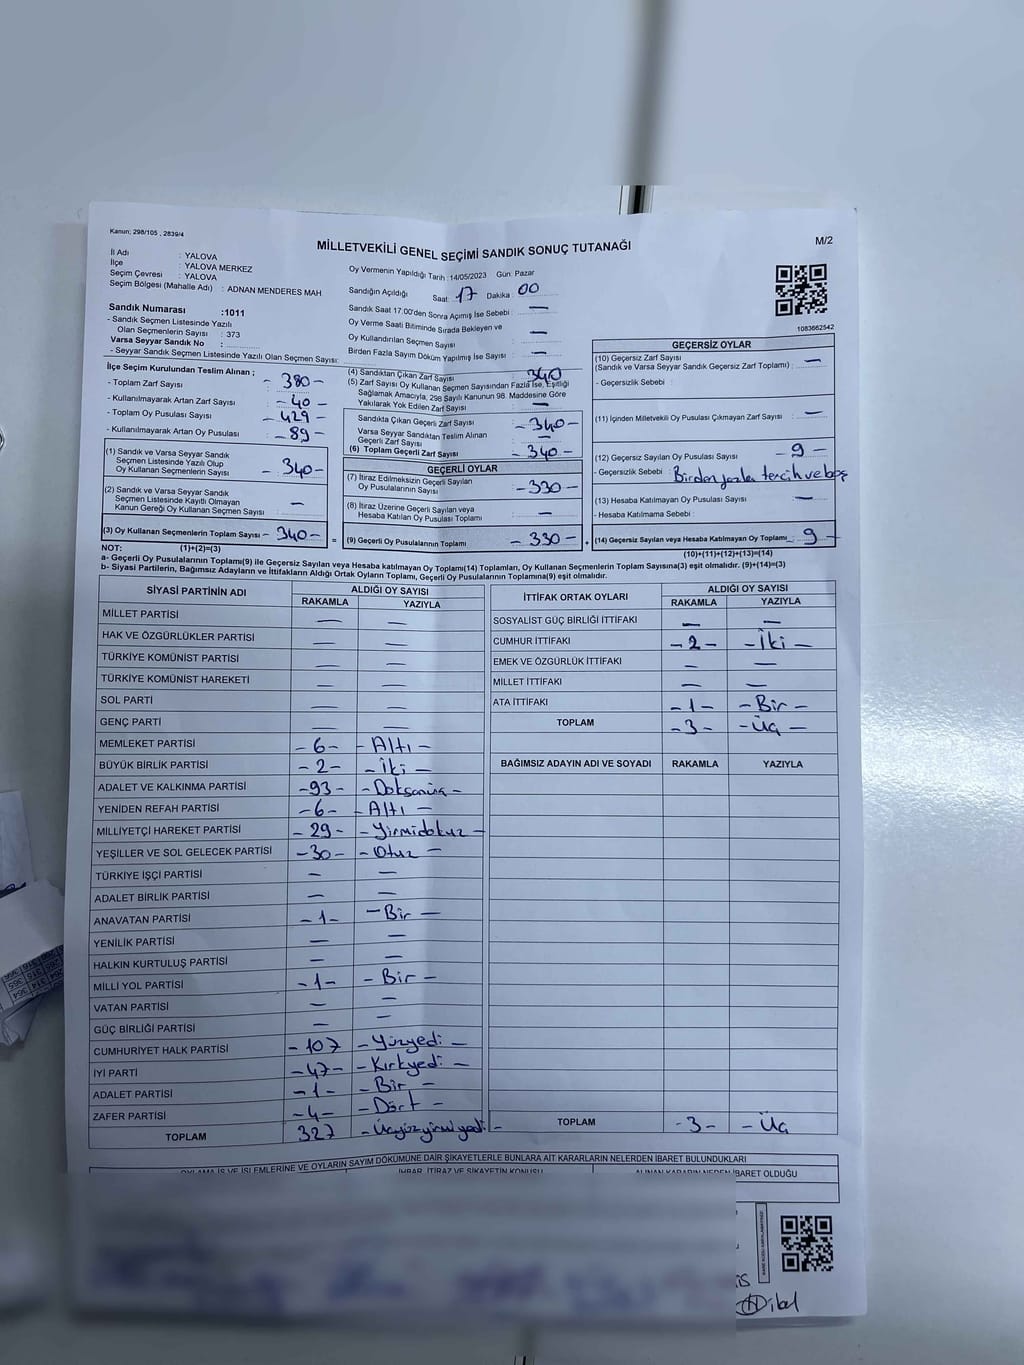 Kanun; 298/105 , 2839/4
MİLLETVEKİLİ GENEL SEÇİMİ SANDIK SONUÇ TUTANAĞI
M/2
İl Adı : YALOVA
İlçe : YALOVA MERKEZ
Seçim Çevresi : YALOVA
Seçim Bölgesi (Mahalle Adı) : ADNAN MENDERES MAH
Sandık Numarası :1011
- Sandık Seçmen Listesinde Yazılı
Olan Seçmenlerin Sayısı : 373
Varsa Seyyar Sandık No :
- Seyyar Sandık Seçmen Listesinde Yazılı Olan Seçmen Sayısı:
Oy Vermenin Yapıldığı Tarih : 14/05/2023 Gün: Pazar
Sandığın Açıldığı Saat: 17 Dakika : 00
Sandık Saat 17:00'den Sonra Açılmış İse Sebebi : —
Oy Verme Saati Bitiminde Sırada Bekleyen ve
Oy Kullandırılan Seçmen Sayısı : —
Birden Fazla Sayım Döküm Yapılmış İse Sayısı : —
1083662542
İlçe Seçim Kurulundan Teslim Alınan ;
- Toplam Zarf Sayısı : - 380 -
- Kullanılmayarak Artan Zarf Sayısı : - 40 -
- Toplam Oy Pusulası Sayısı : - 429 -
- Kullanılmayarak Artan Oy Pusulası : - 89 -
(1) Sandık ve Varsa Seyyar Sandık
Seçmen Listesinde Yazılı Olup
Oy Kullanan Seçmenlerin Sayısı : - 340 -
(2) Sandık ve Varsa Seyyar Sandık
Seçmen Listesinde Kayıtlı Olmayan
Kanun Gereği Oy Kullanan Seçmen Sayısı : —
(3) Oy Kullanan Seçmenlerin Toplam Sayısı - 340 -
(4) Sandıktan Çıkan Zarf Sayısı : 340
(5) Zarf Sayısı Oy Kullanan Seçmen Sayısından Fazla İse, Eşitliği
Sağlamak Amacıyla, 298 Sayılı Kanunun 98. Maddesine Göre
Yakılarak Yok Edilen Zarf Sayısı : —
Sandıkta Çıkan Geçerli Zarf Sayısı : - 340 -
Varsa Seyyar Sandıktan Teslim Alınan
Geçerli Zarf Sayısı : —
(6) Toplam Geçerli Zarf Sayısı : - 340 -
GEÇERLİ OYLAR
(7) İtiraz Edilmeksizin Geçerli Sayılan
Oy Pusulalarının Sayısı : - 330 -
(8) İtiraz Üzerine Geçerli Sayılan veya
Hesaba Katılan Oy Pusulası Toplamı : —
= (9) Geçerli Oy Pusulalarının Toplamı : - 330 -
GEÇERSİZ OYLAR
(10) Geçersiz Zarf Sayısı
(Sandık ve Varsa Seyyar Sandık Geçersiz Zarf Toplamı) : —
- Geçersizlik Sebebi :
(11) İçinden Milletvekili Oy Pusulası Çıkmayan Zarf Sayısı : —
(12) Geçersiz Sayılan Oy Pusulası Sayısı : - 9 -
- Geçersizlik Sebebi : Birden fazla tercih ve boş
(13) Hesaba Katılmayan Oy Pusulası Sayısı : —
- Hesaba Katılmama Sebebi :
+ (14) Geçersiz Sayılan veya Hesaba Katılmayan Oy Toplamı : 9 -
NOT: (1)+(2)=(3)
(10)+(11)+(12)+(13)=(14)
a- Geçerli Oy Pusulaları Toplamı(9) ile Geçersiz Sayılan veya Hesaba Katılmayan Oy Toplamı(14) Toplamları, Oy Kullanan Seçmenlerin Toplam Sayısına(3) eşit olmalıdır. (9)+(14)=(3)
b- Siyasi Partilerin, Bağımsız Adayların ve İttifakların Aldığı Ortak Oyların Toplamı, Geçerli Oy Pusulalarının Toplamına(9) eşit olmalıdır.
SİYASİ PARTİNİN ADI ALDIĞI OY SAYISI
RAKAMLA YAZIYLA
MİLLET PARTİSİ — —
HAK VE ÖZGÜRLÜKLER PARTİSİ — —
TÜRKİYE KOMÜNİST PARTİSİ — —
TÜRKİYE KOMÜNİST HAREKETİ — —
SOL PARTİ — —
GENÇ PARTİ — —
MEMLEKET PARTİSİ - 6 - - Altı -
BÜYÜK BİRLİK PARTİSİ - 2 - - İki -
ADALET VE KALKINMA PARTİSİ - 93 - - Doksanüç -
YENİDEN REFAH PARTİSİ - 6 - - Altı -
MİLLİYETÇİ HAREKET PARTİSİ - 29 - - Yirmidokuz -
YEŞİLLER VE SOL GELECEK PARTİSİ - 30 - - Otuz -
TÜRKİYE İŞÇİ PARTİSİ — —
ADALET BİRLİK PARTİSİ — —
ANAVATAN PARTİSİ - 1 - - Bir -
YENİLİK PARTİSİ — —
HALKIN KURTULUŞ PARTİSİ — —
MİLLİ YOL PARTİSİ - 1 - - Bir -
VATAN PARTİSİ — —
GÜÇ BİRLİĞİ PARTİSİ —
CUMHURİYET HALK PARTİSİ - 107 - Yüzyedi -
İYİ PARTİ - 47 - - Kırkyedi -
ADALET PARTİSİ - 1 - - Bir -
ZAFER PARTİSİ - 4 - - Dört -
TOPLAM 327 - Üçyüzyirmiyedi -
İTTİFAK ORTAK OYLARI ALDIĞI OY SAYISI
RAKAMLA YAZIYLA
SOSYALİST GÜÇ BİRLİĞİ İTTİFAKI — —
CUMHUR İTTİFAKI - 2 - - İki -
EMEK VE ÖZGÜRLÜK İTTİFAKI — —
MİLLET İTTİFAKI — —
ATA İTTİFAKI - 1 - - Bir -
TOPLAM - 3 - - Üç -
BAĞIMSIZ ADAYIN ADI VE SOYADI RAKAMLA YAZIYLA
TOPLAM - 3 - - Üç
OYLAMA İŞ VE İŞLEMLERİNE VE OYLARIN SAYIM DÖKÜMÜNE DAİR ŞİKAYETLERLE BUNLARA AİT KARARLARIN NELERDEN İBARET BULUNDUKLARI
İHBAR, İTİRAZ VE ŞİKAYETİN KONUSU ALINAN KARARIN NEDEN İBARET OLDUĞU